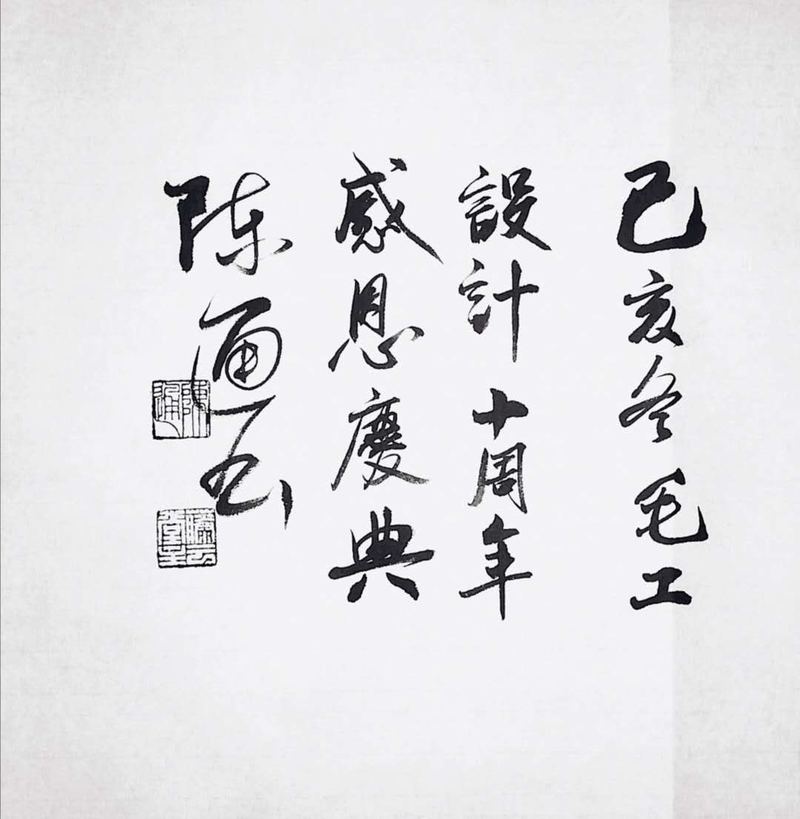 己亥冬毛工
設計十周年
感恩慶典
陈书